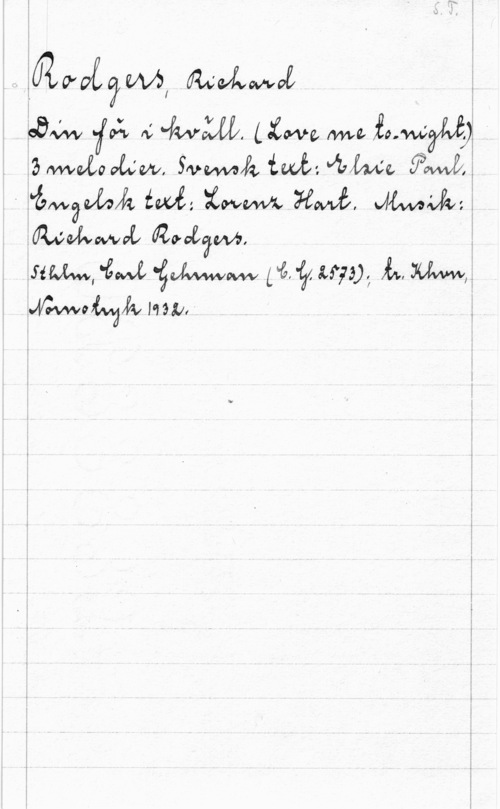 S. T.
Rodgers, Richard
Din för i kväll. (Love me to-night)
3 melodier. Svensk text: Elsie Paul.
Engelsk text: Lorenz Hart. Musik:
Richard Rodgers.
Sthlm, Carl Gehrman (C. G. 2573); tr. Khvn,
Nornotryk 1932.